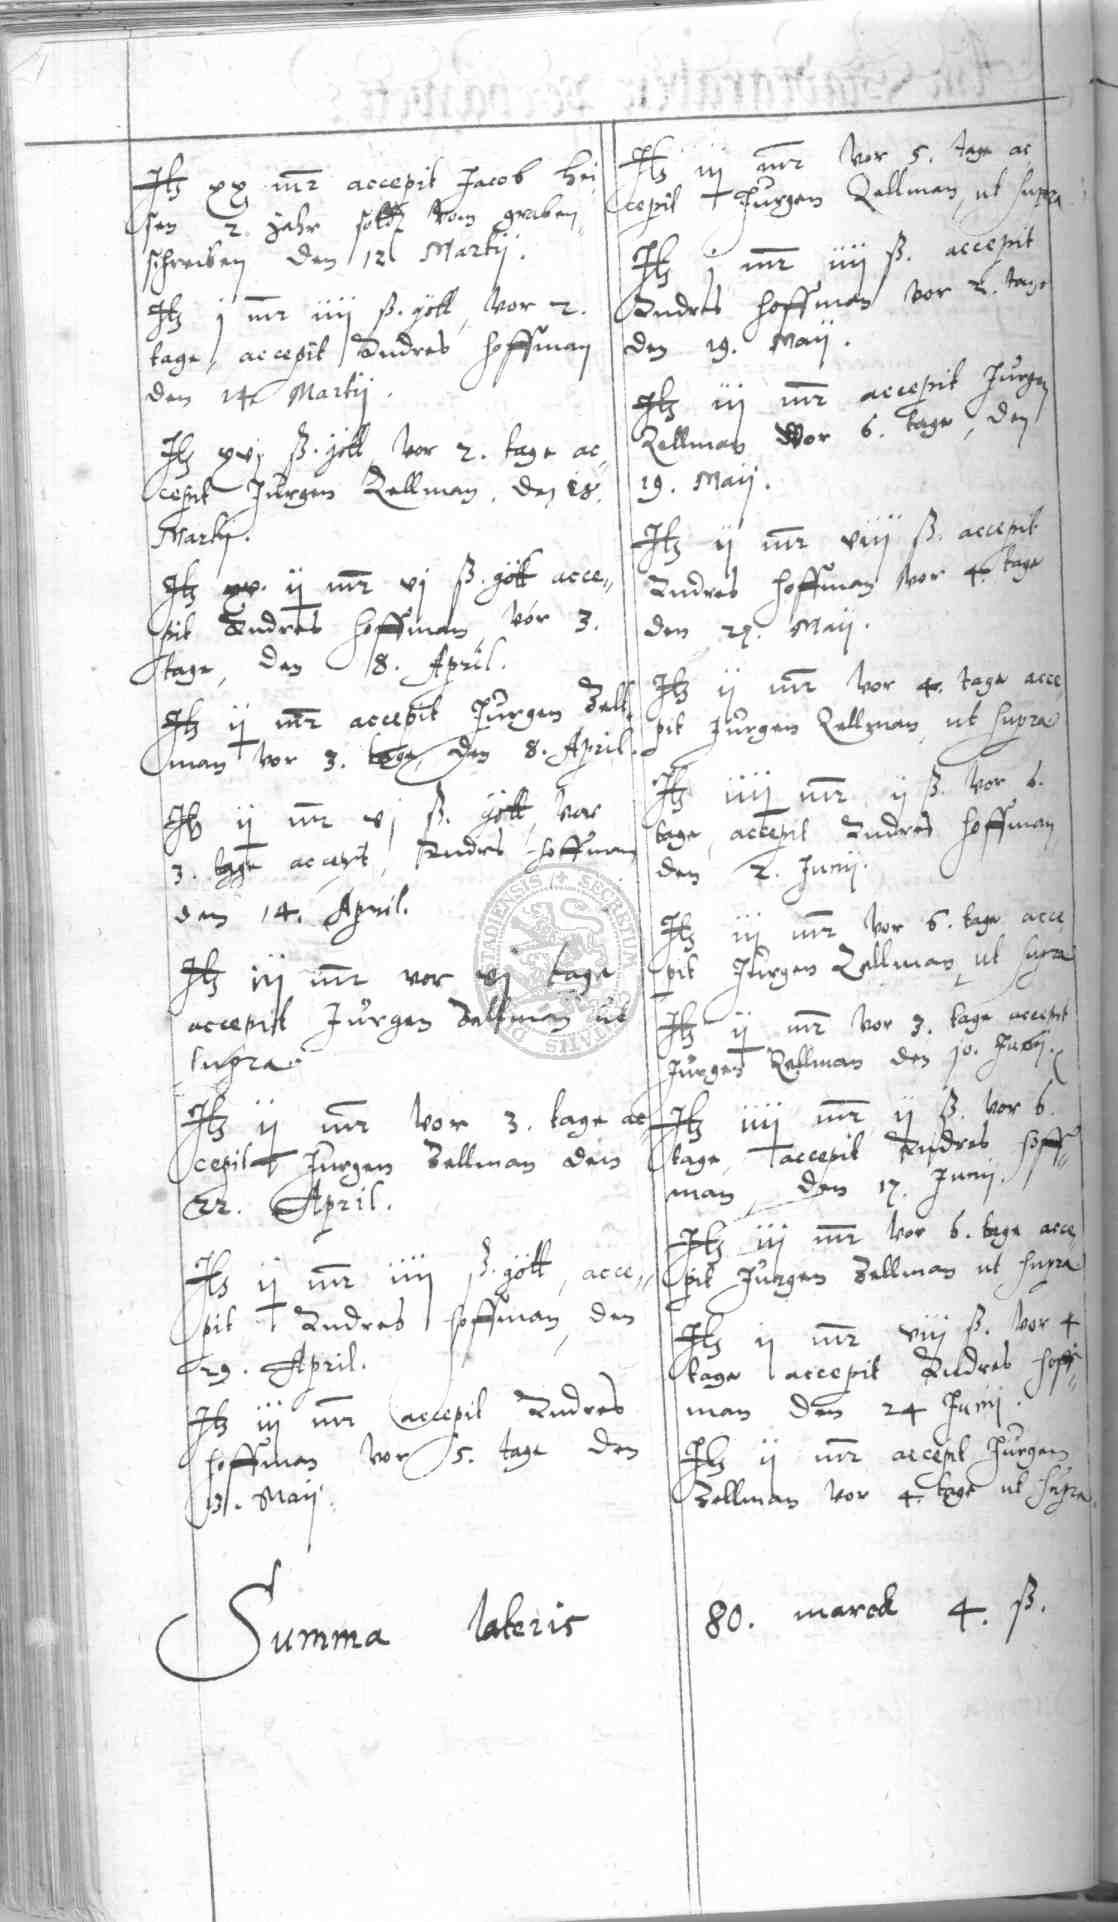 Itz xx mr accepit Jacob Hei
sen 2. Jahr soldt vom graben
schreiben den 12 Martij.
Itz j mr iiij ß. gött, vor 2.
tage, accepit Andres Hoffman
den 14 Martij.
Itz xvj ß. gött vor 2. tage ac
cepit Jürgen Zellman, den 18.
Martij.
Itz ij mr vj ß. gött acce„
pit Andres Hoffman, vor 3.
tage, den 8. April.
Itz ij mr accepit Jürgen Zell
man vor 3. tage, den 8. April.
Itz ij mr vj ß. gött, vor
3. tage accepit, Andres Hoffman
den 14. April.
Itz iij mr vor vj tage
accepit Jürgen Zellman ut
supra.
Itz ij mr vor 3. tage ac
cepit Jurgen Zellman den
22. April.
Itz ij mr iiij ß. gött, acce„
pit Andres Hoffman, den
29. April.
Itz iij mr accepit Andres
Hoffman vor 5. tage den
13. Maij.
Itz iij mr vor 5. tage ac
cepit Jürgen Zellman, ut supra.
Itz j mr iiij ß. accepit
Andres Hoffman vor 2. tage
den 19. Maij.
Itz iij mr accepit Jürgen
Zellman vor 6. tage, den
19. Maij.
Itz ij mr viij ß. accepit
Andres Hoffman vor 4. tage
den 27. Maij.
Itz ij mr vor 4. tage acce
pit Jürgen Zellman, ut supra
Itz iiij mr ij ß. vor 6.
tage, accepit Andres Hoffman,
den 2. Junij.
Itz iij mr vor 6. tage acce
pit Jürgen Zellman, ut supra
Itz ij mr vor 3. tage accepit
Jürgen Zellman den 10. Junij.
Itz iiij mr ij ß. vor 6.
tage, accepit Andres Hoff„
man, den 17. Junij.
Itz iij mr vor 6. tage acce„
pit Jurgen Zellman ut supra
Itz ij mr viij ß. vor 4
tage accepit Andres Hoff„
man den 24 Junij.
Itz ij mr accepit Jürgen
Zellman vor 4. tage ut supra.
Summa lateris 80. marck 4. ß.
SECRETUM
STADIENSIS